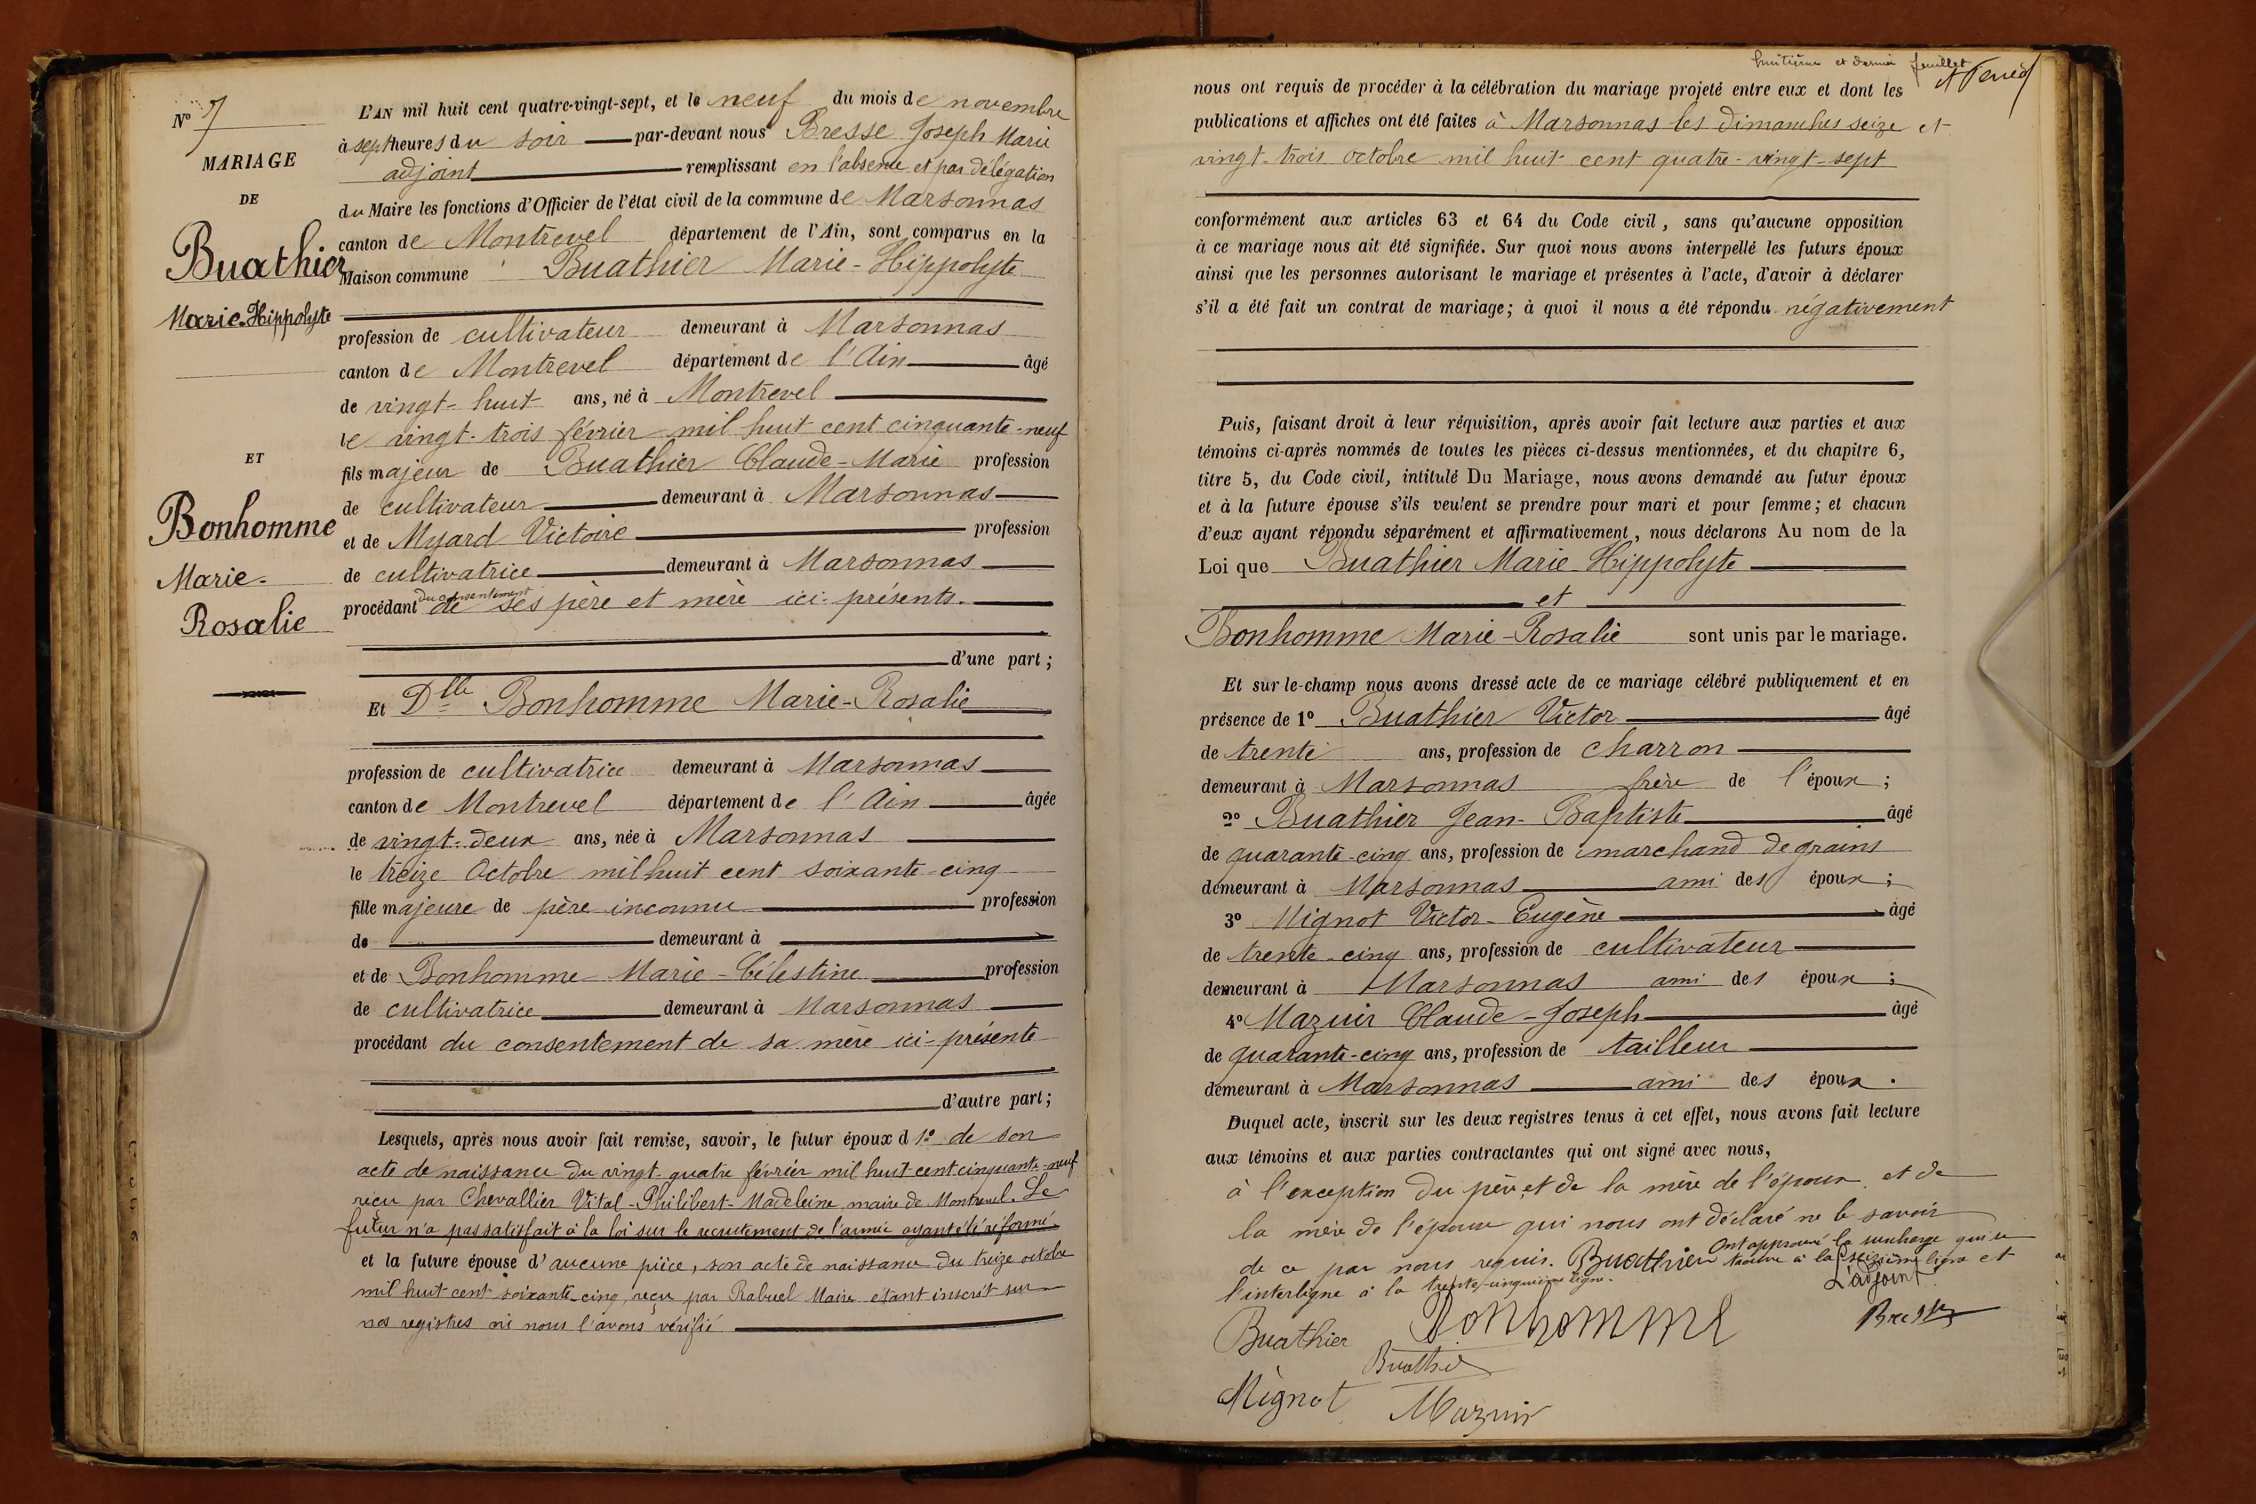 N° 7
MARIAGE
DE
Buathier
Marie-Hippolyte
ET
Bonhomme
Marie-
Rosalie
L'AN mil huit cent quatre-vingt-sept, et le neuf du mois de novembre
à sept heures du soir par-devant nous Bresse Joseph Marie
adjoint remplissant en l'absence et par délégation
du Maire les fonctions d'Officier de l'état civil de la commune de Marsonnas
canton de Montrevel département de l'Ain, sont comparus en la
Maison commune Buathier Marie-Hippolyte
profession de cultivateur demeurant à Marsonnas
canton de Montrevel département de l'Ain âgé
de vingt-huit ans, né à Montrevel
le vingt-trois février mil huit cent cinquante-neuf
fils majeur de Buathier Claude-Marie profession
de cultivateur demeurant à Marsonnas
et de Myard Victoire profession
de cultivatrice demeurant à Marsonnas
du consentement
procédant de ses père et mère ici-présents.
d'une part ;
Et Dlle Bonhomme Marie-Rosalie
profession de cultivatrice demeurant à Marsonnas
canton de Montrevel département de l'Ain âgée
de vingt-deux ans, née à Marsonnas
le treize Octobre mil huit cent soixante-cinq
fille majeure de père inconnu profession
de demeurant à
et de Bonhomme Marie-Célestine profession
de cultivatrice demeurant à Marsonnas
procédant du consentement de sa mère ici-présente
d'autre part ;
Lesquels, après nous avoir fait remise, savoir, le futur époux d 1° de son
acte de naissance du vingt-quatre février mil huit cent cinquante-neuf
reçu par Chevallier Vital-Philibert-Madeleine maire de Montrevel. Le
futur n'a pas satisfait à la loi sur le recrutement de l'armée ayant été réformé
et la future épouse d'aucune pièce, son acte de naissance du treize octobre
mil huit cent soixante-cinq, reçu par Rabuel Maire étant inscrit sur
nos registres où nous l'avons vérifié
huitième et dernier feuillet
nous ont requis de procéder à la célébration du mariage projeté entre eux et dont les
publications et affiches ont été faites à Marsonnas les dimanches seize et
vingt-trois octobre mil huit cent quatre-vingt-sept
conformément aux articles 63 et 64 du Code civil, sans qu'aucune opposition
à ce mariage nous ait été signifiée. Sur quoi nous avons interpellé les futurs époux
ainsi que les personnes autorisant le mariage et présentes à l'acte, d'avoir à déclarer
s'il a été fait un contrat de mariage ; à quoi il nous a été répondu négativement
Puis, faisant droit à leur réquisition, après avoir fait lecture aux parties et aux
témoins ci-après nommés de toutes les pièces ci-dessus mentionnées, et du chapitre 6,
titre 5, du Code civil, intitulé Du Mariage, nous avons demandé au futur époux
et à la future épouse s'ils veulent se prendre pour mari et pour femme ; et chacun
d'eux ayant répondu séparément et affirmativement, nous déclarons Au nom de la
Loi que Buathier Marie Hippolyte
et
Bonhomme Marie-Rosalie sont unis par le mariage.
Et sur le-champ nous avons dressé acte de ce mariage célébré publiquement et en
présence de 1° Buathier Victor âgé
de trente ans, profession de charron
demeurant à Marsonnas frère de l'époux ;
2° Buathier Jean-Baptiste âgé
de quarante-cinq ans, profession de marchand de grains
demeurant à Marsonnas ami des époux ;
3° Mignot Victor-Eugène âgé
de trente-cinq ans, profession de cultivateur
demeurant à Marsonnas ami des époux ;
4° Mazuir Claude-Joseph âgé
de quarante-cinq ans, profession de tailleur
demeurant à Marsonnas ami des époux.
Duquel acte, inscrit sur les deux registres tenus à cet effet, nous avons fait lecture
aux témoins et aux parties contractantes qui ont signé avec nous,
à l'exception du père et de la mère de l'époux et de
la mère de l'épouse qui nous ont déclaré ne le savoir
de ce par nous requis. Buathier Ont approuvé la surcharge qui se
trouve à la seizième ligne et
l'interligne à la trente-cinquième ligne.
L'adjoint
Buathier Bonhomme Bresse
Buathier
Mignot Mazuir